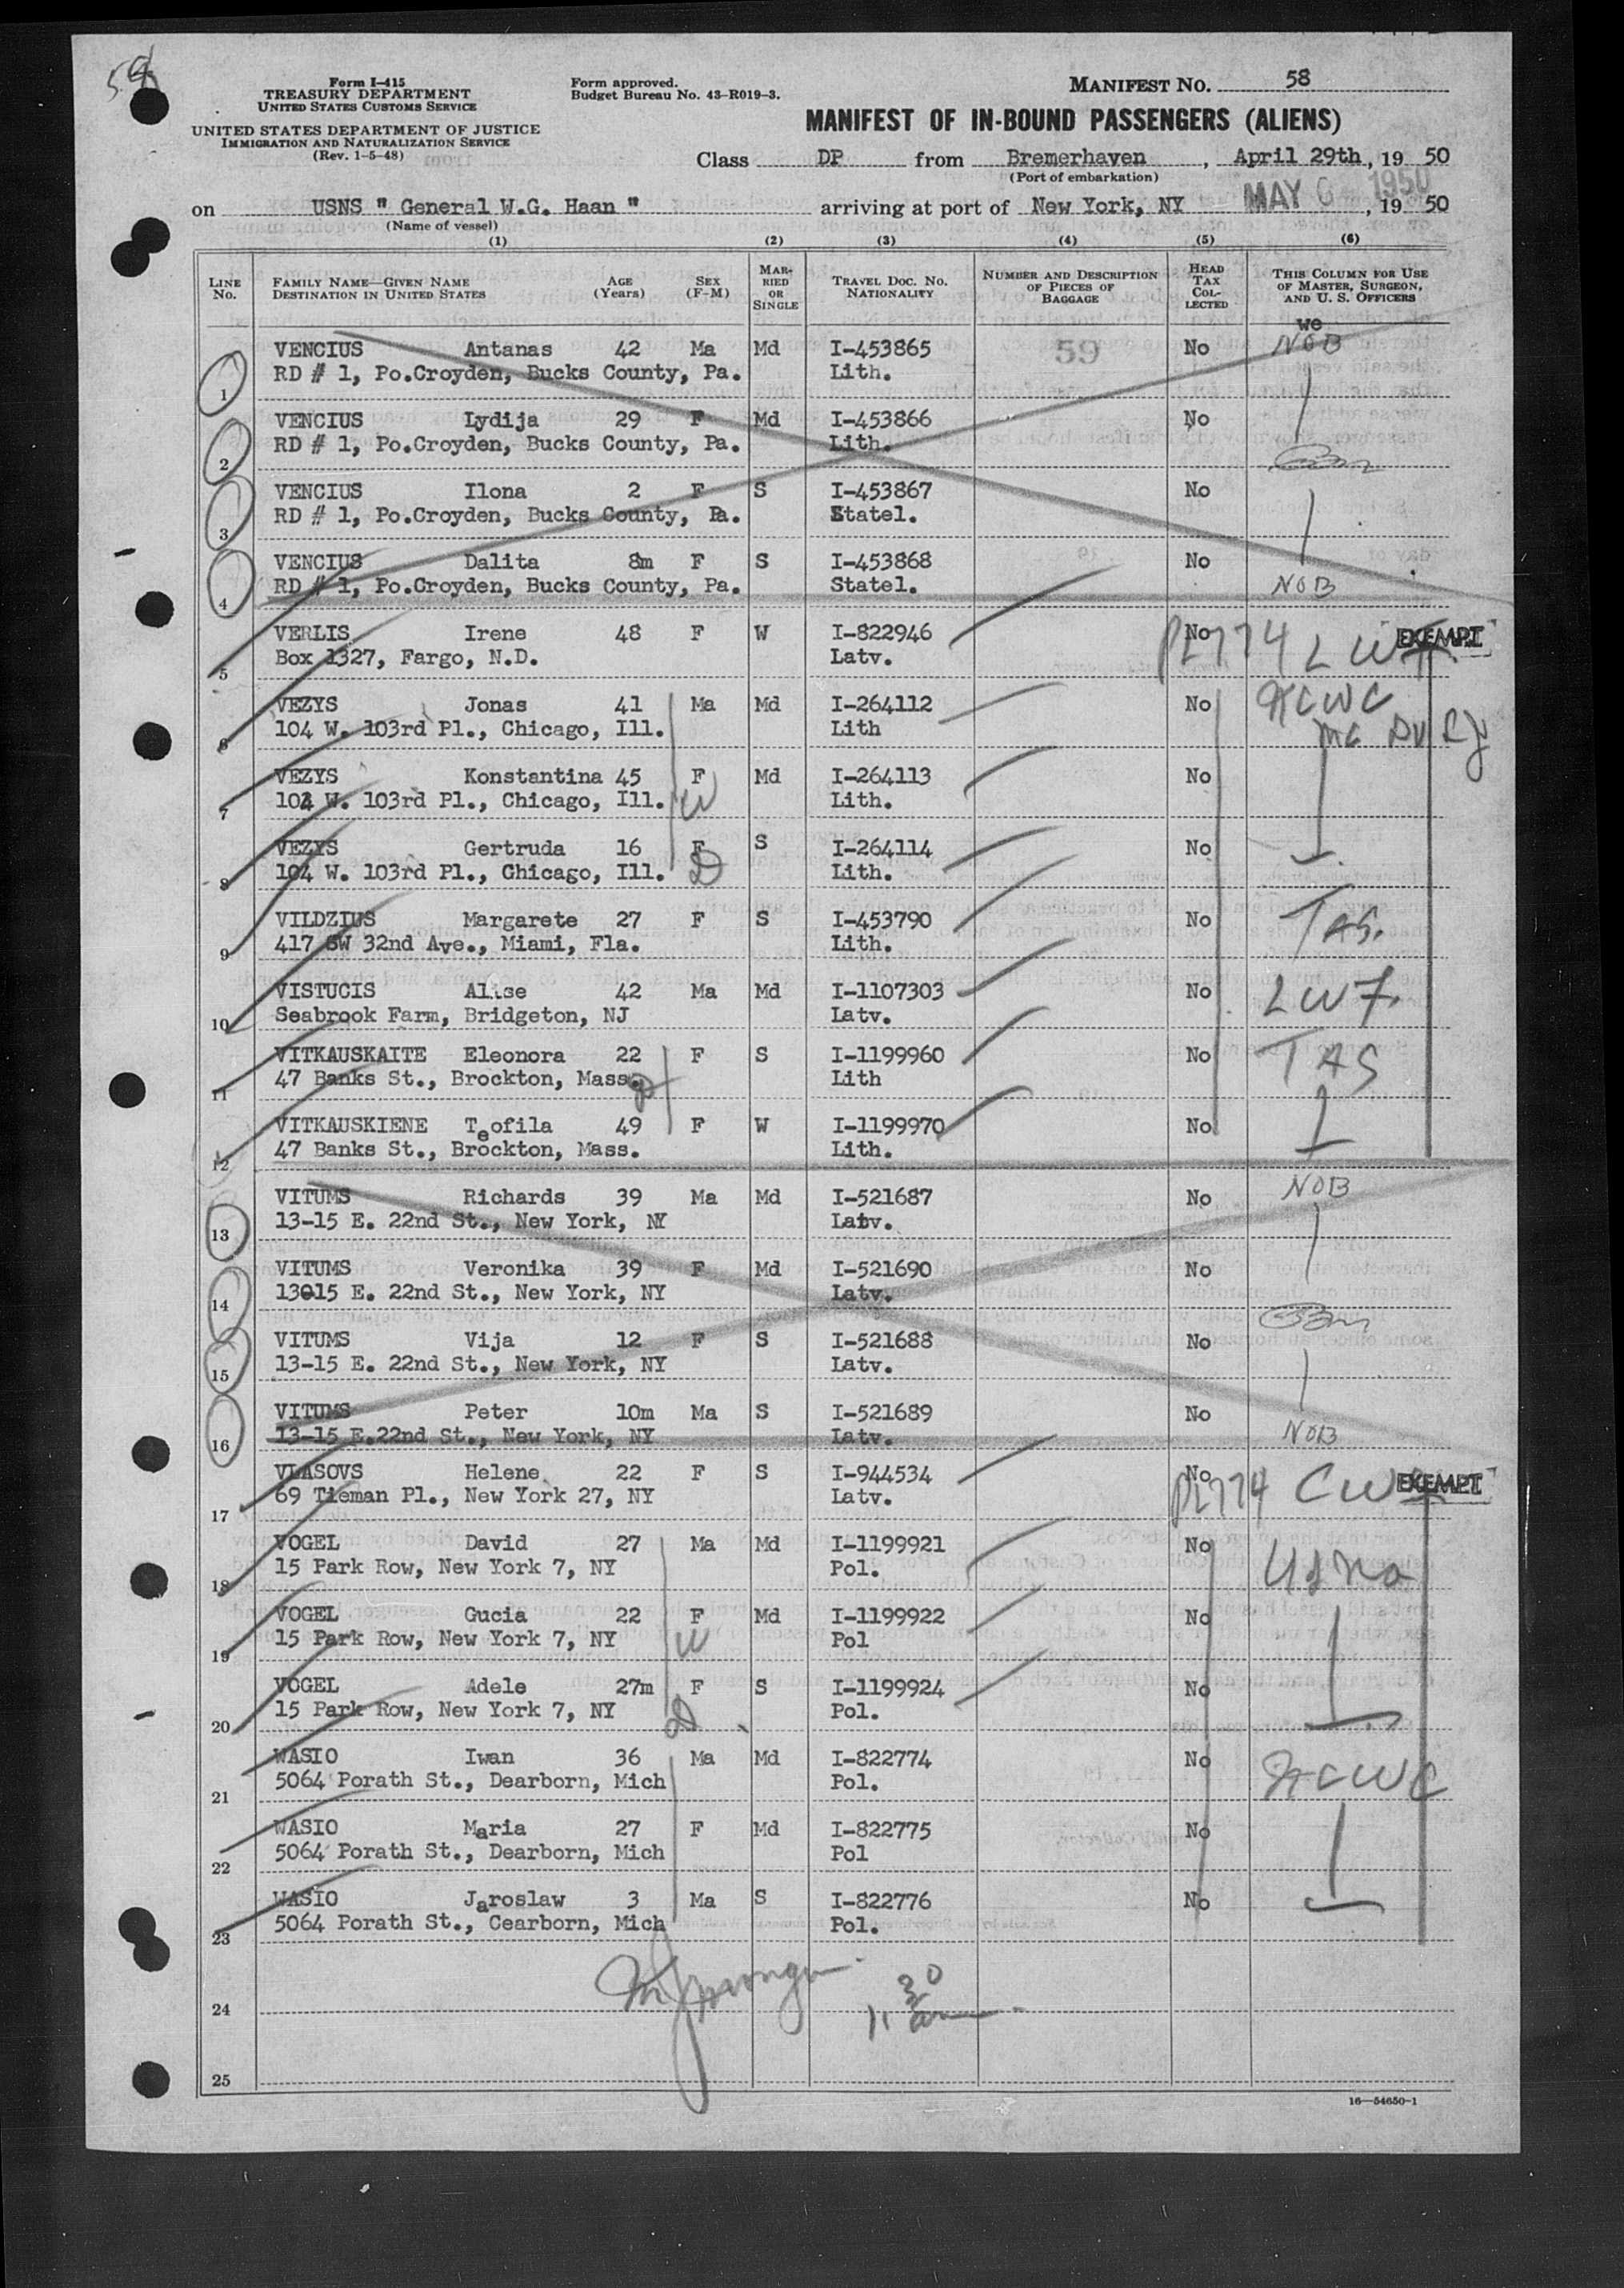 Form I-415
TREASURY DEPARTMENT
UNITED STATES CUSTOMS SERVICE
UNITED STATES DEPARTMENT OF JUSTICE
IMMIGRATION AND NATURALIZATION SERVICE
(Rev. 1-5-48)
Form approved.
Budget Bureau No. 43-R019-3.
MANIFEST NO. 58
MANIFEST OF IN-BOUND PASSENGERS (ALIENS)
Class DP from Bremerhaven, April 29th, 19 50
(Port of embarkation)
on USNS " General W.G. Haan " arriving at port of New York, NY MAY 6 1950, 19 50
(Name of vessel)
(1) (2) (3) (4) (5) (6)
LINE No. FAMILY NAME—GIVEN NAME DESTINATION IN UNITED STATES AGE (Years) SEX (F-M) MARRIED OR SINGLE TRAVEL DOC. NO. NATIONALITY NUMBER AND DESCRIPTION OF PIECES OF BAGGAGE HEAD TAX COLLECTED THIS COLUMN FOR USE OF MASTER, SURGEON, AND U. S. OFFICERS
we
1 VENCIUS Antanas 42 Ma Md I-453865 59 No NOB
RD # 1, Po.Croyden, Bucks County, Pa. Lith.
2 VENCIUS Lydija 29 F Md I-453866 No
RD # 1, Po.Croyden, Bucks County, Pa. Lith.
3 VENCIUS Ilona 2 F S I-453867 No
RD # 1, Po.Croyden, Bucks County, Pa. Statel.
4 VENCIUS Dalita 8m F S I-453868 No
RD # 1, Po.Croyden, Bucks County, Pa. Statel. NOB
5 VERLIS Irene 48 F W I-822946 No PL774 LWF EXEMPT
Box 1327, Fargo, N.D. Latv.
6 VEZYS Jonas 41 Ma Md I-264112 No NCWC
104 W. 103rd Pl., Chicago, Ill. Lith
7 VEZYS Konstantina 45 F Md I-264113 No
104 W. 103rd Pl., Chicago, Ill. W Lith.
8 VEZYS Gertruda 16 F S I-264114 No
104 W. 103rd Pl., Chicago, Ill. D Lith.
9 VILDZIUS Margarete 27 F S I-453790 No TAS.
417 SW 32nd Ave., Miami, Fla. Lith.
10 VISTUCIS Alise 42 Ma Md I-1107303 No LWF.
Seabrook Farm, Bridgeton, NJ Latv.
11 VITKAUSKAITE Eleonora 22 F S I-1199960 No TAS
47 Banks St., Brockton, Mass. D Lith
12 VITKAUSKIENE Teofila 49 F W I-1199970 No
47 Banks St., Brockton, Mass. Lith.
13 VITUMS Richards 39 Ma Md I-521687 No NOB
13-15 E. 22nd St., New York, NY Latv.
14 VITUMS Veronika 39 F Md I-521690 No
13015 E. 22nd St., New York, NY Latv.
15 VITUMS Vija 12 F S I-521688 No
13-15 E. 22nd St., New York, NY Latv.
16 VITUMS Peter 10m Ma S I-521689 No
13-15 E.22nd St., New York, NY Latv. NOB
17 VLASOVS Helene 22 F S I-944534 No PL774 CWS EXEMPT
69 Tieman Pl., New York 27, NY Latv.
18 VOGEL David 27 Ma Md I-1199921 No USNA
15 Park Row, New York 7, NY Pol.
19 VOGEL Gucia 22 F Md I-1199922 No
15 Park Row, New York 7, NY W Pol
20 VOGEL Adele 27m F S I-1199924 No
15 Park Row, New York 7, NY D Pol.
21 WASIO Iwan 36 Ma Md I-822774 No NCWC
5064 Porath St., Dearborn, Mich Pol.
22 WASIO Maria 27 F Md I-822775 No
5064 Porath St., Dearborn, Mich Pol
23 WASIO Jaroslaw 3 Ma S I-822776 No
5064 Porath St., Cearborn, Mich Pol.
24 11 30 am
25
16—54650-1